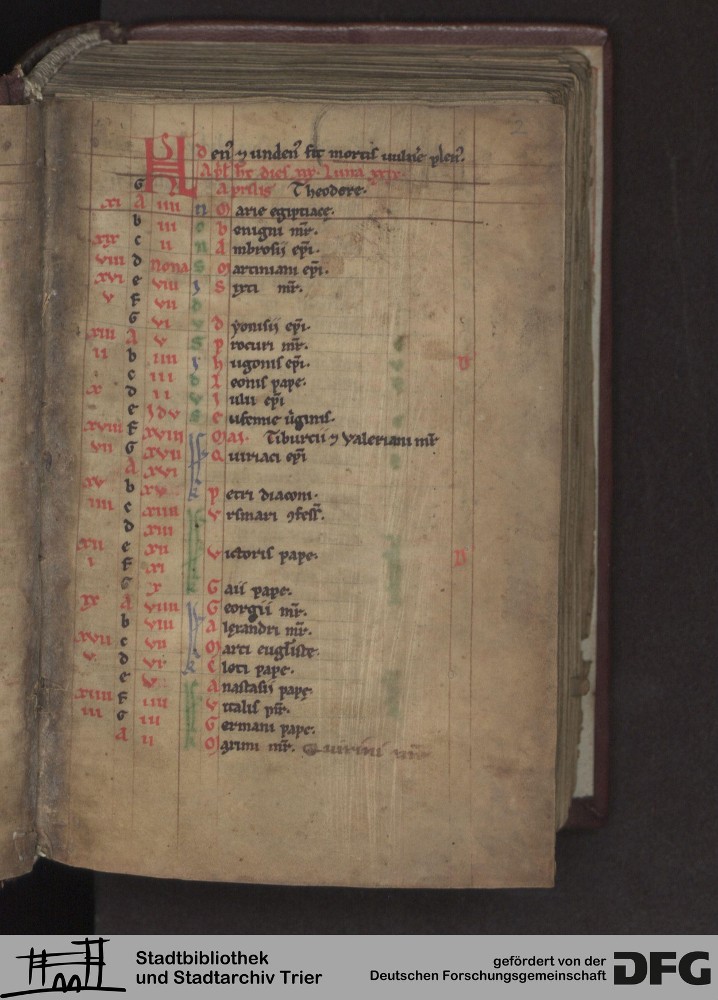 2
Denꝰ ⁊ undenꝰ est mortis uulnere plenꝰ.
Apl' ht dies xxx. Luna xxix.
G Aprilis Theodore.
xi A iiii n Marie egiptiace.
b iii o benigni mr̄.
xix c ii n Ambrosii epi.
viii d nona s Marciani epi.
xvi e viii i Sixti mr̄.
v f vii d
G vi v dyonisii epi.
xiii A v s procuri mr̄.
ii b iiii i hugonis epi. D
c iii d Leonis pape.
x d ii v Iulii epi
e Idv s eufemie uginis.
xviii f xviii Mai. Tiburcii ⁊ Valeriani mr̄
vii G xvii Quiriaci epi
A xvi
xv b xv k petri diaconi.
iiii c xiiii Vrsmari ɔfess̄.
d xiii
xii e xii Victoris pape. D
i f xi
G x Gaii pape.
ix A viiii Georgii mr̄.
b viii Alexandri mr̄.
xvii c vii Marci euḡliste.
v d vi k Cleti pape.
e v Anastasii pape
xiiii f iiii Vitalis mr̄.
iii G iii Germani pape.
A ii Qirini mr̄. Quirini mr̄
Stadtbibliothek
und Stadtarchiv Trier
gefördert von der
Deutschen Forschungsgemeinschaft
DFG